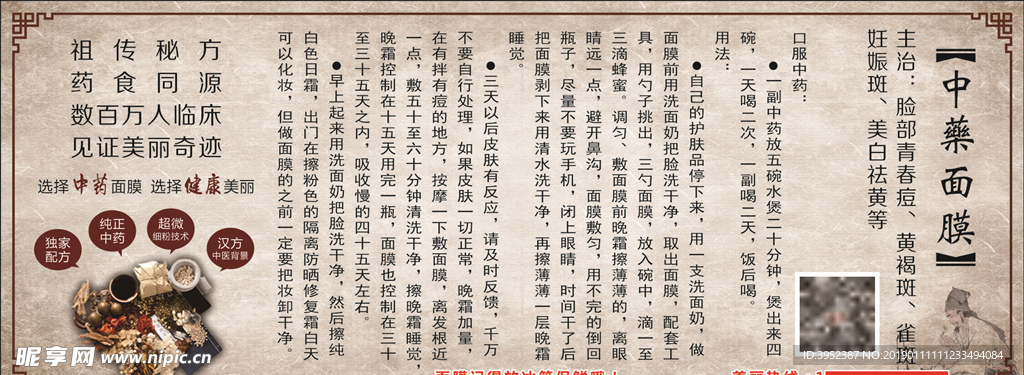 【中藥面膜】
主治：脸部青春痘、黄褐斑、雀斑
妊娠斑、美白祛黄等
口服中药：
●一副中药放五碗水煲二十分钟，煲出来四
碗，一天喝二次，一副喝二天，饭后喝。
用法：
●自己的护肤品停下来，用一支洗面奶，做
面膜前用洗面奶把脸洗干净，取出面膜，配套工
具，用勺子挑出，三勺面膜，放入碗中，滴一至
三滴蜂蜜。调匀、敷面膜前晚霜擦薄薄的，离眼
睛远一点，避开鼻沟，面膜敷匀，用不完的倒回
瓶子，尽量不要玩手机，闭上眼睛，时间干了后
把面膜剥下来用清水洗干净，再擦薄薄一层晚霜
睡觉。
●三天以后皮肤有反应，请及时反馈，千万
不要自行处理，如果皮肤一切正常，晚霜加量，
在有拌有痘的地方，按摩一下敷面膜，离发根近
一点，敷五十至六十分钟清洗干净，擦晚霜睡觉，
晚霜控制在十五天用完一瓶，面膜也控制在三十
至三十五天之内，吸收慢的四十五天左右。
●早上起来用洗面奶把脸洗干净，然后擦纯
白色日霜，出门在擦粉色的隔离防晒修复霜白天
可以化妆，但做面膜的之前一定要把妆卸干净。
祖传秘方
药食同源
数百万人临床
见证美丽奇迹
选择中药面膜 选择健康美丽
独家
配方
纯正
中药
超微
细粉技术
汉方
中医背景
昵享网 www.nipic.cn
ID:3952387 NO:20190111111233494084